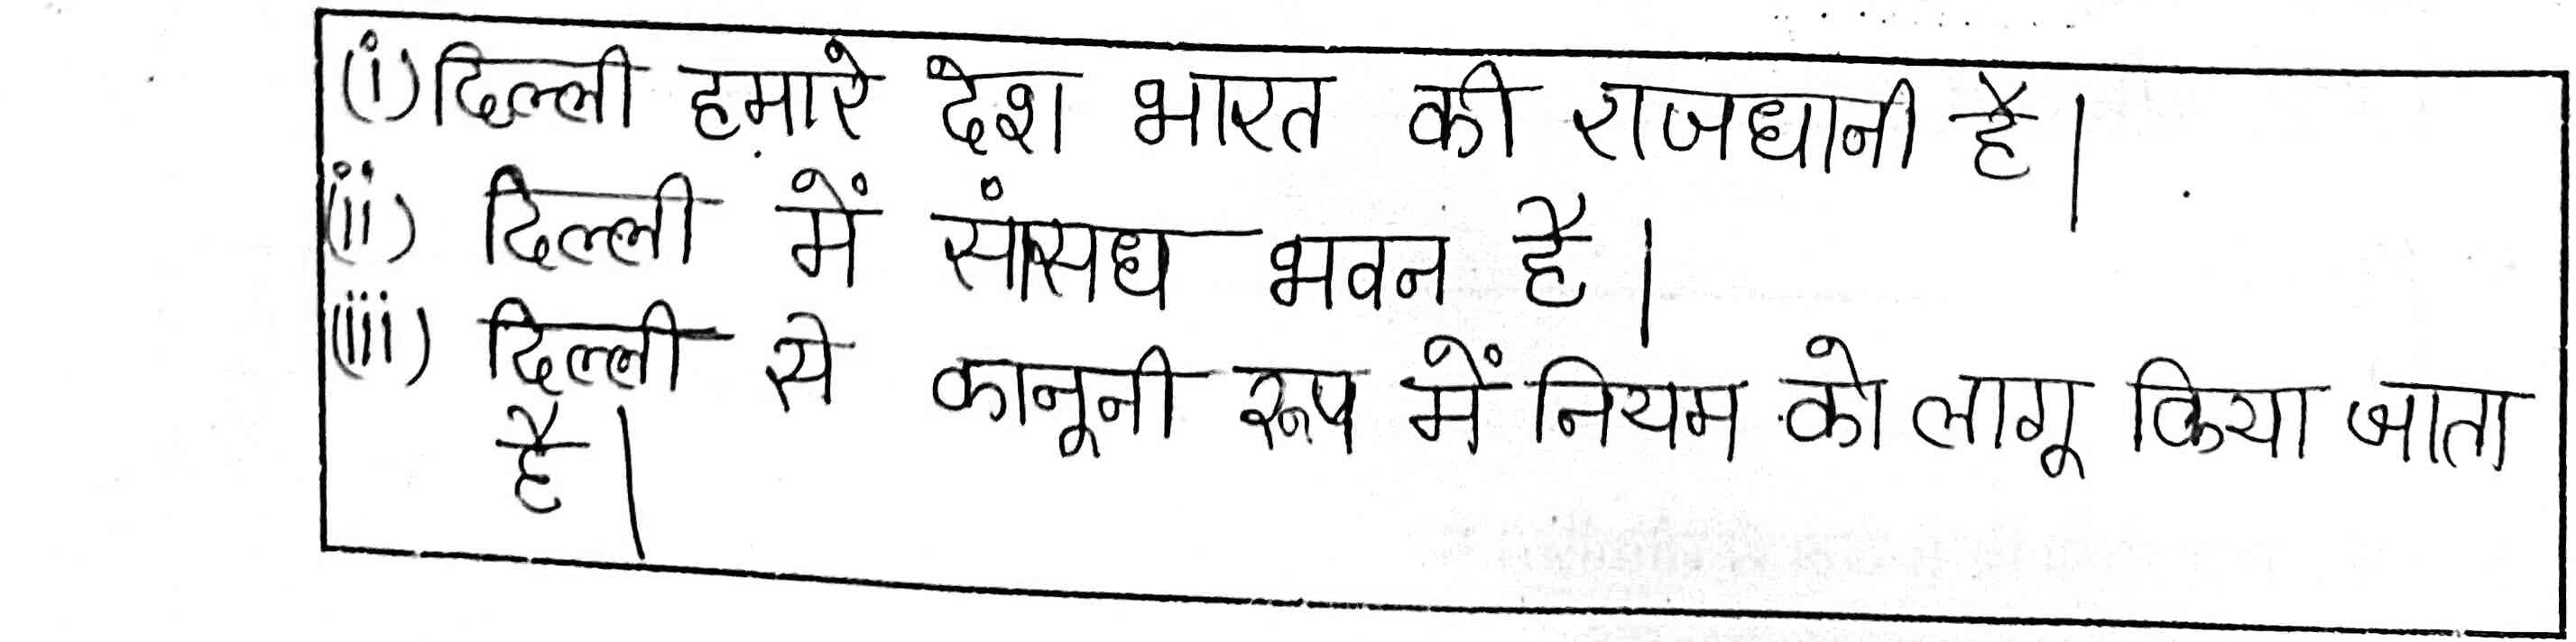 (i) दिल्ली हमारे देश भारत की राजधानी है।
(ii) दिल्ली में सांसध भवन है।
(iii) दिल्ली से कानूनी रूप में नियम को लागू किया जाता
है।